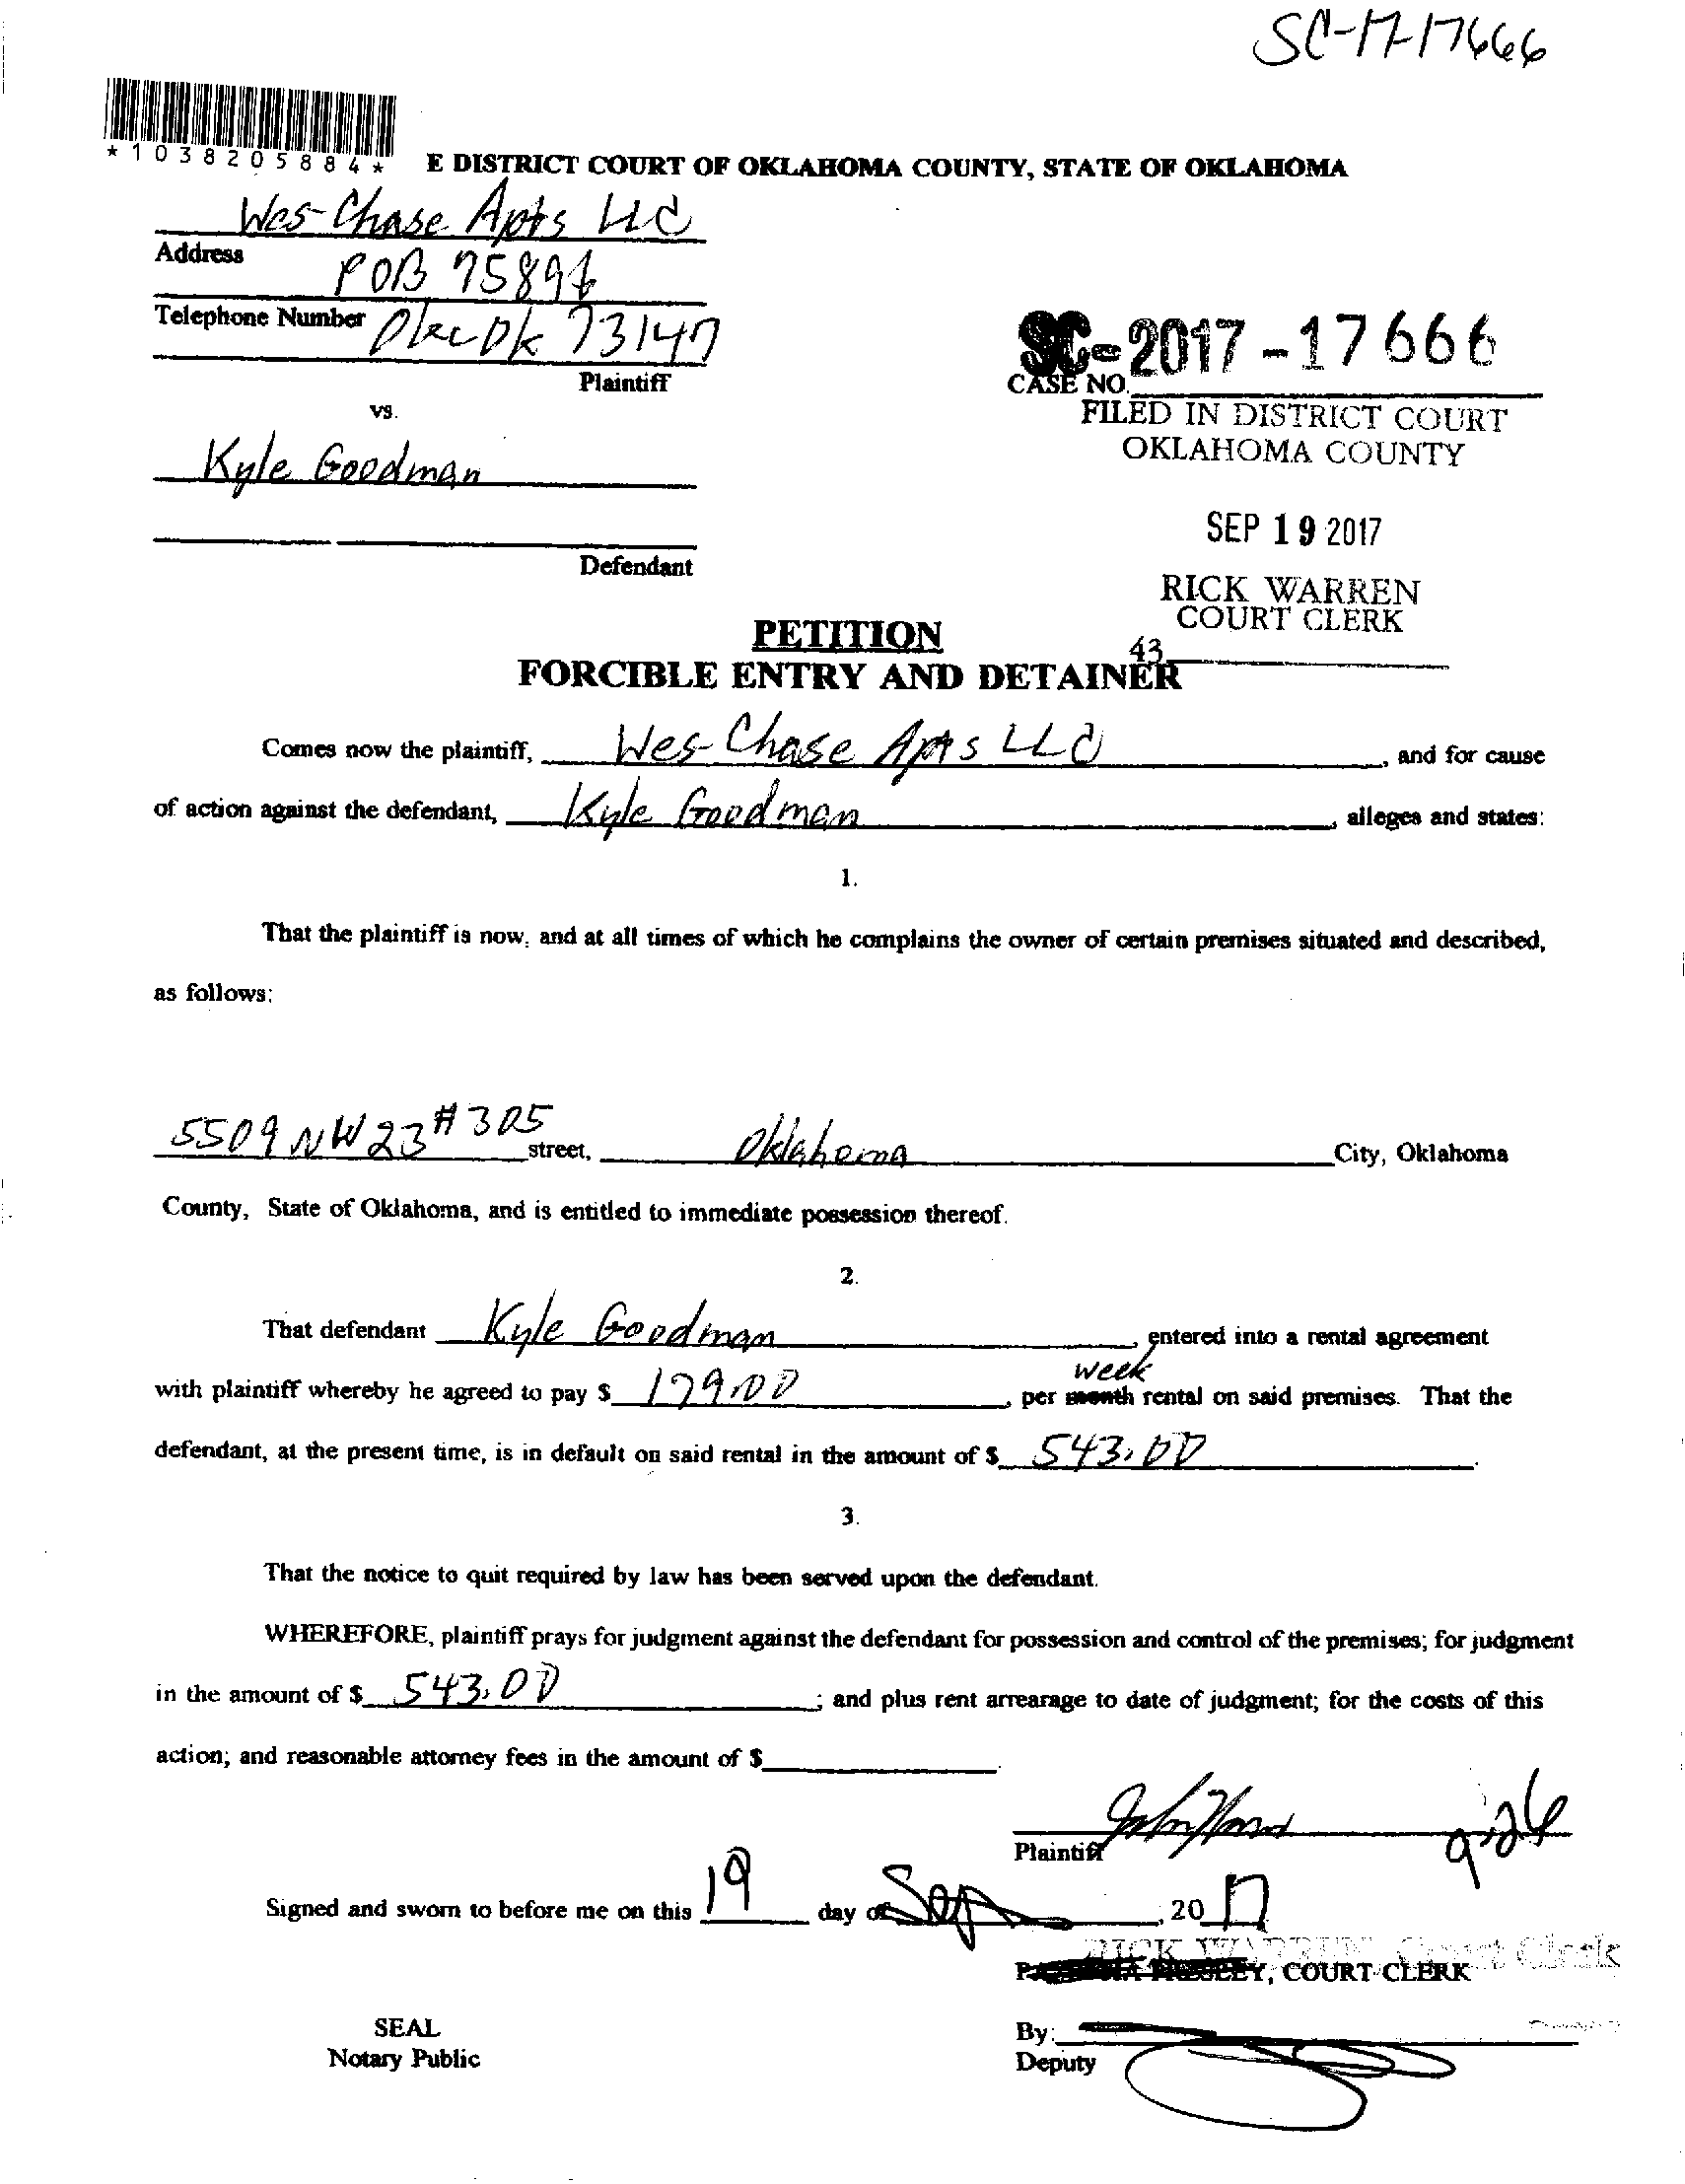 SC-17-17666
*1038205884*
E DISTRICT COURT OF OKLAHOMA COUNTY, STATE OF OKLAHOMA
Wes-Chase Apts LLC
Address
POB 75894
Telephone Number
Okc Ok 73147
Plaintiff
SC-2017-17666
CASE NO.
vs.
FILED IN DISTRICT COURT
OKLAHOMA COUNTY
Kyle Goodman
SEP 19 2017
Defendant
RICK WARREN
COURT CLERK
PETITION
43
FORCIBLE ENTRY AND DETAINER
Comes now the plaintiff, Wes-Chase Apts LLC, and for cause
of action against the defendant, Kyle Goodman, alleges and states:
1.
That the plaintiff is now, and at all times of which he complains the owner of certain premises situated and described,
as follows:
5509 NW 23 #305 street, Oklahoma City, Oklahoma
County, State of Oklahoma, and is entitled to immediate possession thereof.
2.
That defendant Kyle Goodman, entered into a rental agreement
week
with plaintiff whereby he agreed to pay $ 179.00, per month rental on said premises. That the
defendant, at the present time, is in default on said rental in the amount of $ 543.00.
3.
That the notice to quit required by law has been served upon the defendant.
WHEREFORE, plaintiff prays for judgment against the defendant for possession and control of the premises; for judgment
in the amount of $ 543.00; and plus rent arrearage to date of judgment; for the costs of this
action; and reasonable attorney fees in the amount of $.
9-26
Plaintiff
Signed and sworn to before me on this 19 day of Sep, 2017
RICK WARREN, Court Clerk
, COURT CLERK
SEAL
By:
Notary Public
Deputy